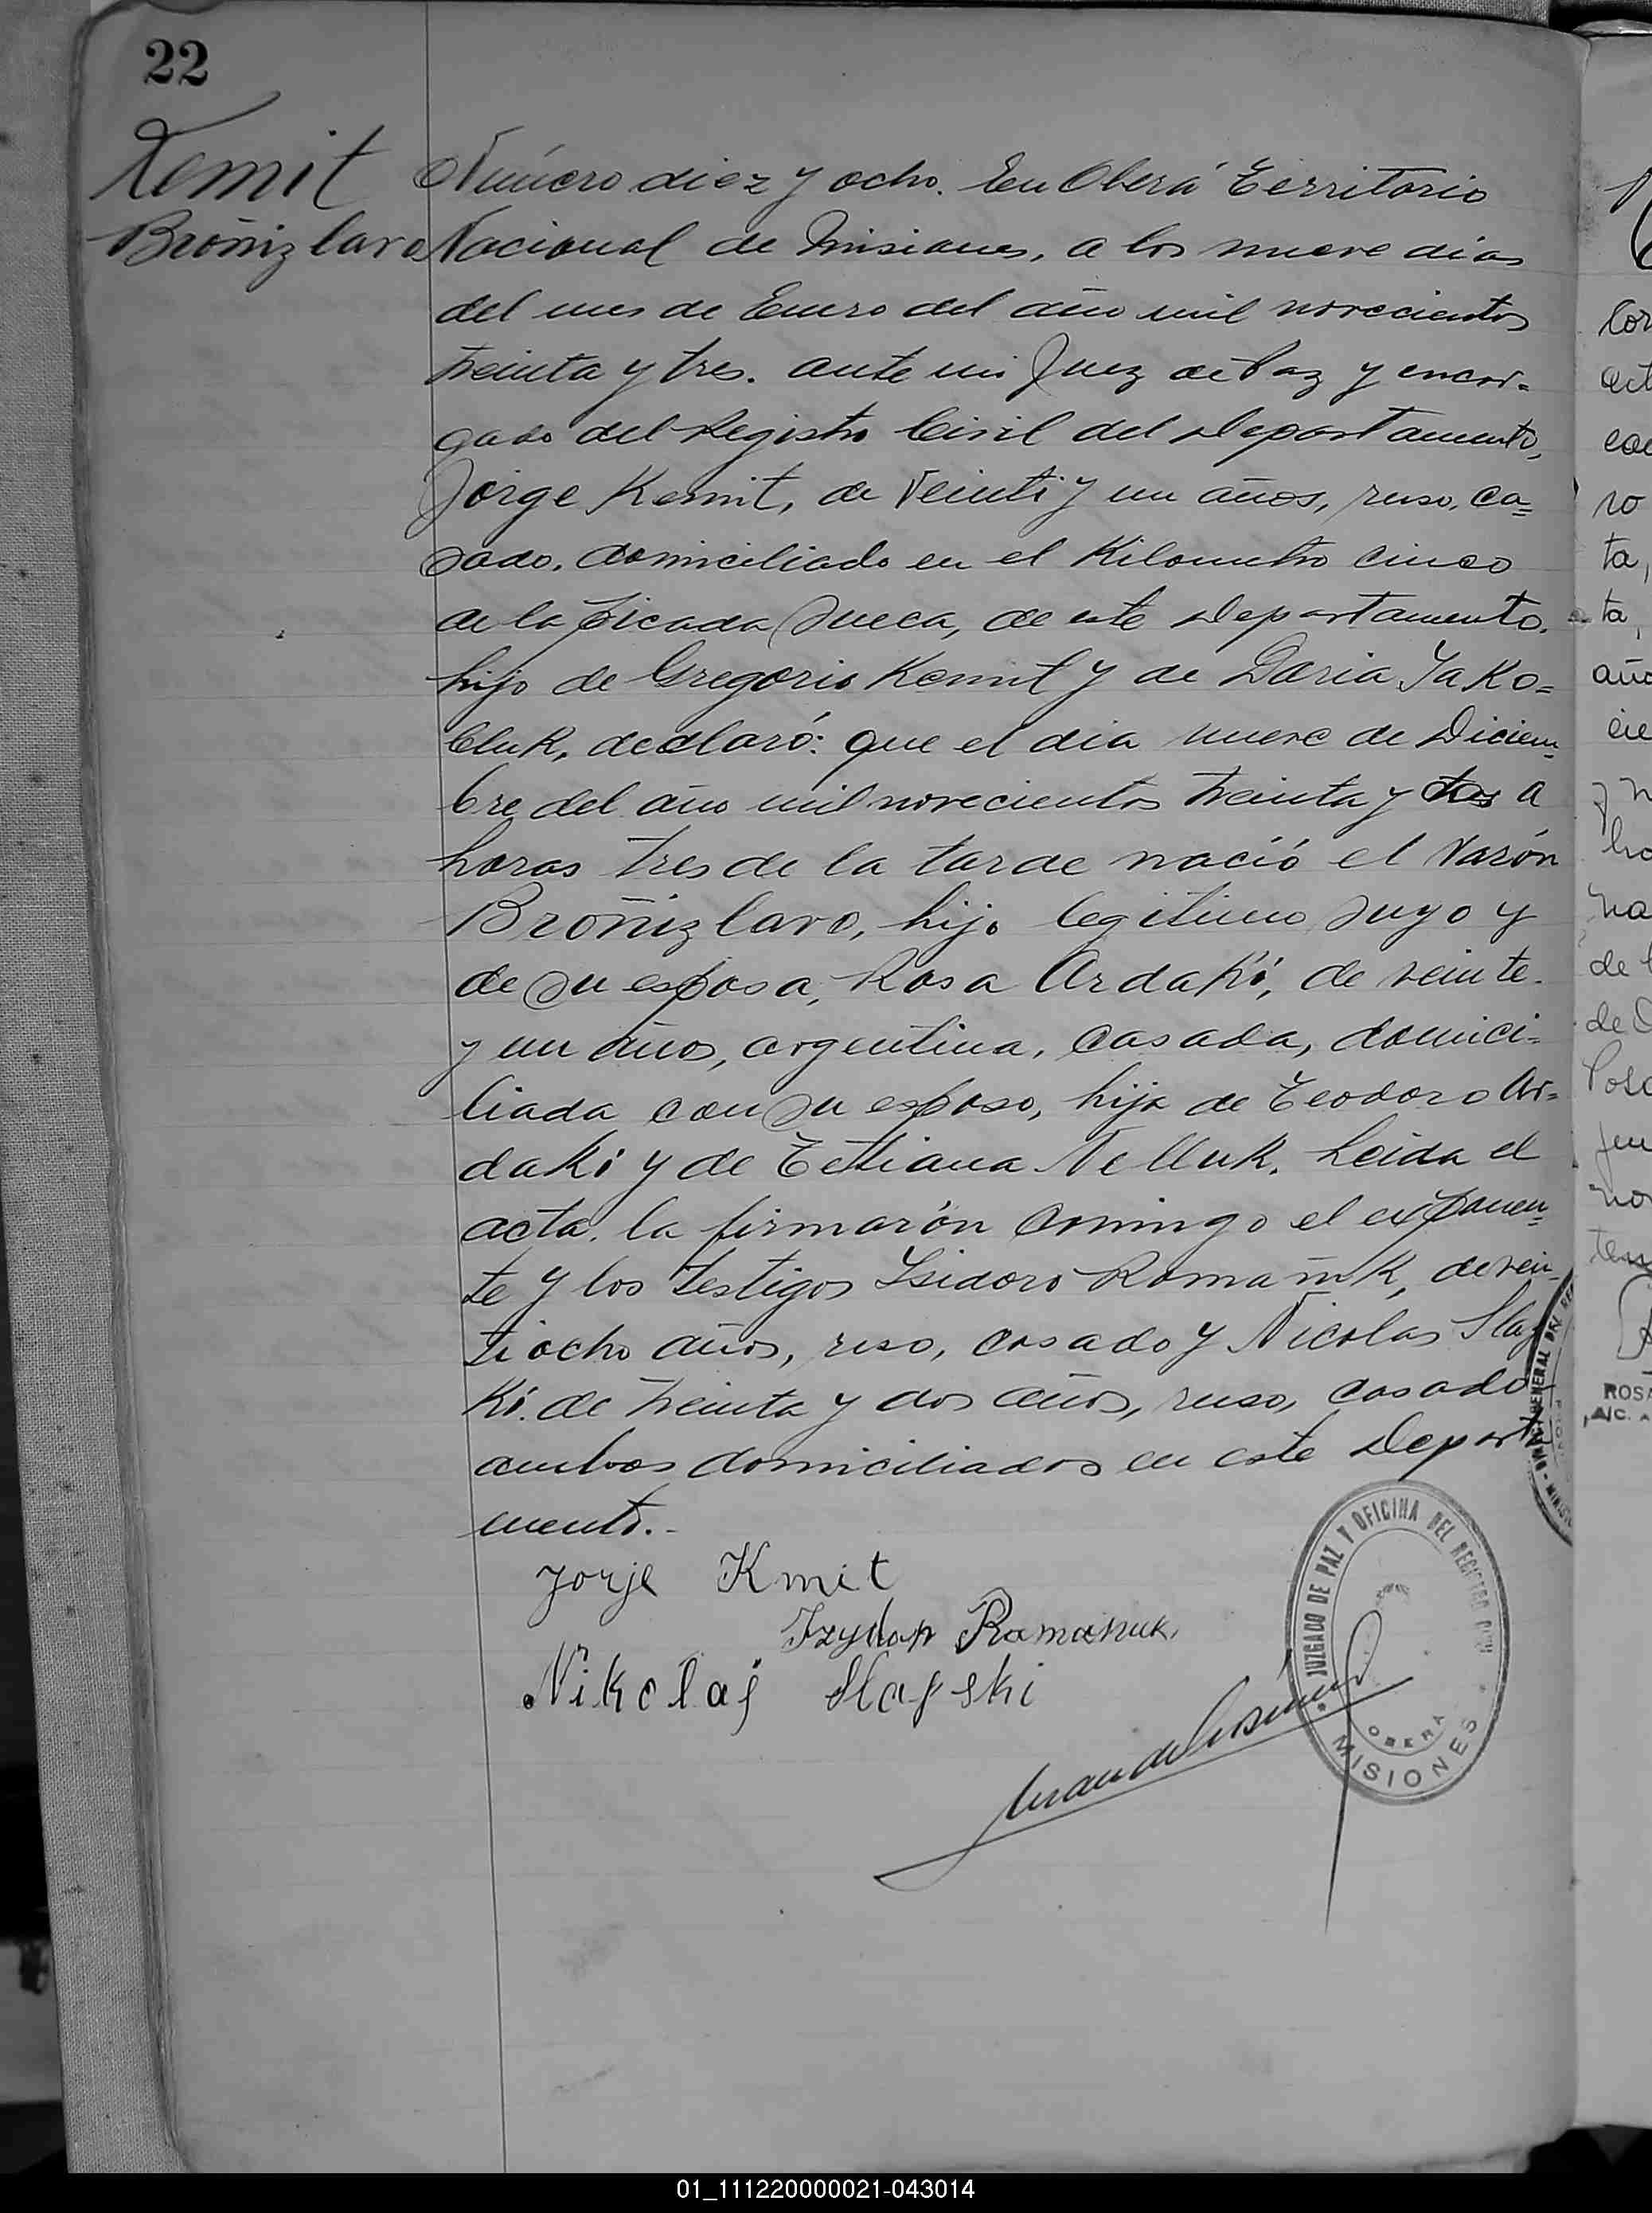 22
Kemit
Broñizlavo
Número diez y ocho. En Oberá Territorio
Nacional de Misiones, a los nueve dias
del mes de Enero del año mil novecientos
treinta y tres. ante mi Juez de Paz y encar=
gado del Registro Civil del Departamento,
Jorge Kemit, de veinti y un años, ruso, ca=
sado, domiciliado en el Kilometro cinco
de la picada Sueca, de este Departamento.
hijo de Gregorio Kemit y de Daria Yako=
bluk, declaró: que el dia nueve de Diciem=
bre del año mil novecientos treinta y dos a
horas tres de la tarde nació el varón
Broñizlavo, hijo legitimo suyo y
de su esposa, Rosa Ardaki, de veinte
y un años, argentina, casada, domici=
liada con su esposo, hija de Teodoro Ar=
daki y de Tetiana Nelluk. Leida el
acta, la firmarón conmigo el exponen=
te y los testigos Isidoro Romañuk, de vein=
tiocho años, ruso, casado y Nicolas Slay
ki. de treinta y dos años, ruso, casado
ambos domiciliados en este Departa
mento.-
Jorje Kmit
Izydor Romanuk.
Nikolaj Slayski
JUZGADO DE PAZ Y OFICINA DEL REGISTRO CIVIL
OBERA
MISIONES
01_111220000021-043014